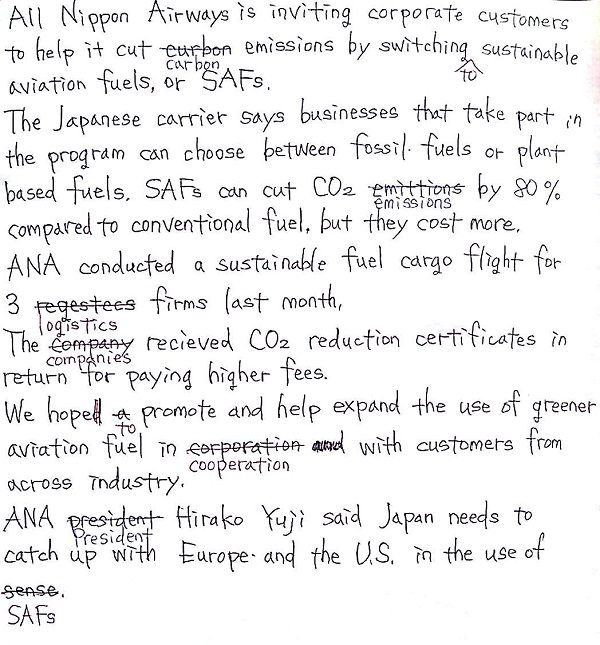 All Nippon Airways is inviting corporate customers
to help it cut curbon emissions by switching sustainable
carbon
to
aviation fuels, or SAFs.
The Japanese carrier says businesses that take part in
the program can choose between fossil fuels or plant
based fuels. SAFs can cut CO2 emittions by 80%
emissions
compared to conventional fuel, but they cost more.
ANA conducted a sustainable fuel cargo flight for
3 regestecs firms last month,
logistics
The company recieved CO2 reduction certificates in
companies
return for paying higher fees.
We hoped a promote and help expand the use of greener
to
aviation fuel in corporation and with customers from
cooperation
across industry.
ANA president Hirako Yuji said Japan needs to
President
catch up with Europe and the U.S. in the use of
sense.
SAFs